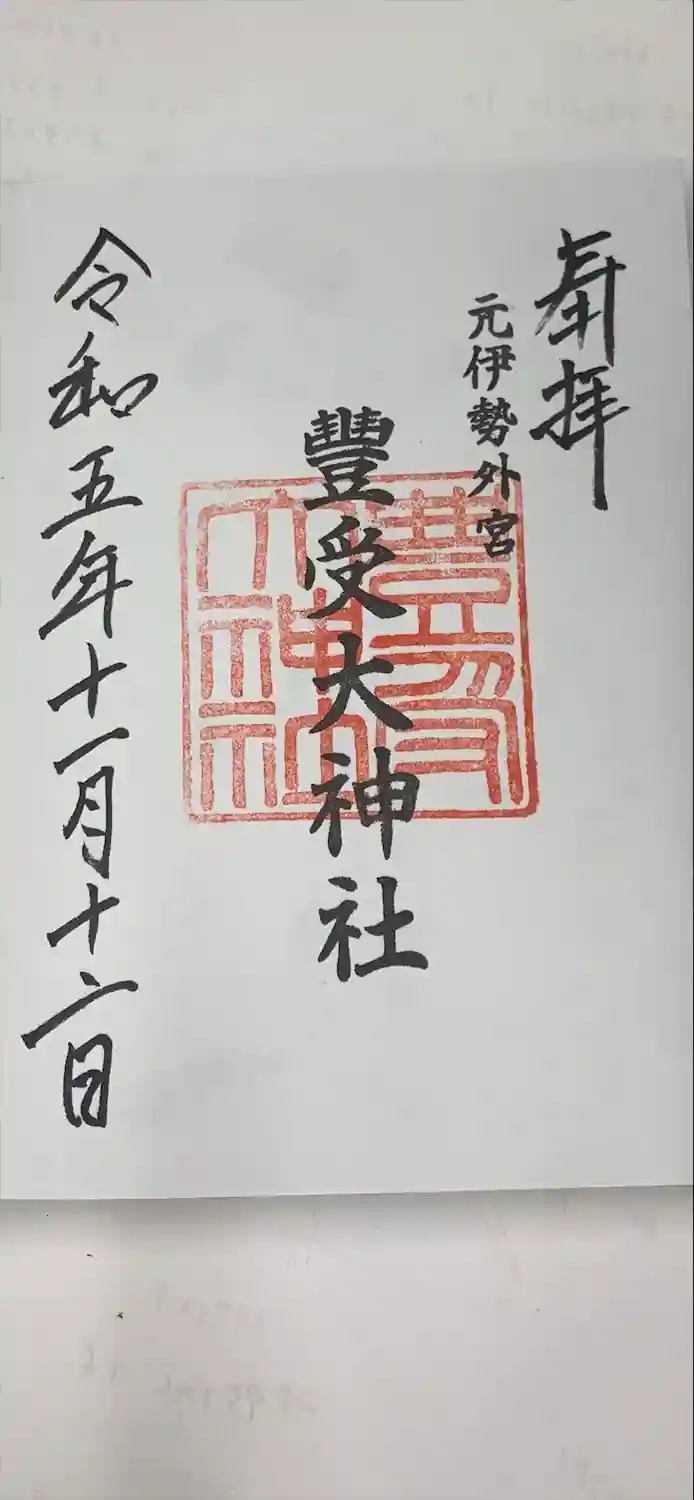 奉拝
元伊勢外宮
豐受大神社
令和五年十一月十六日